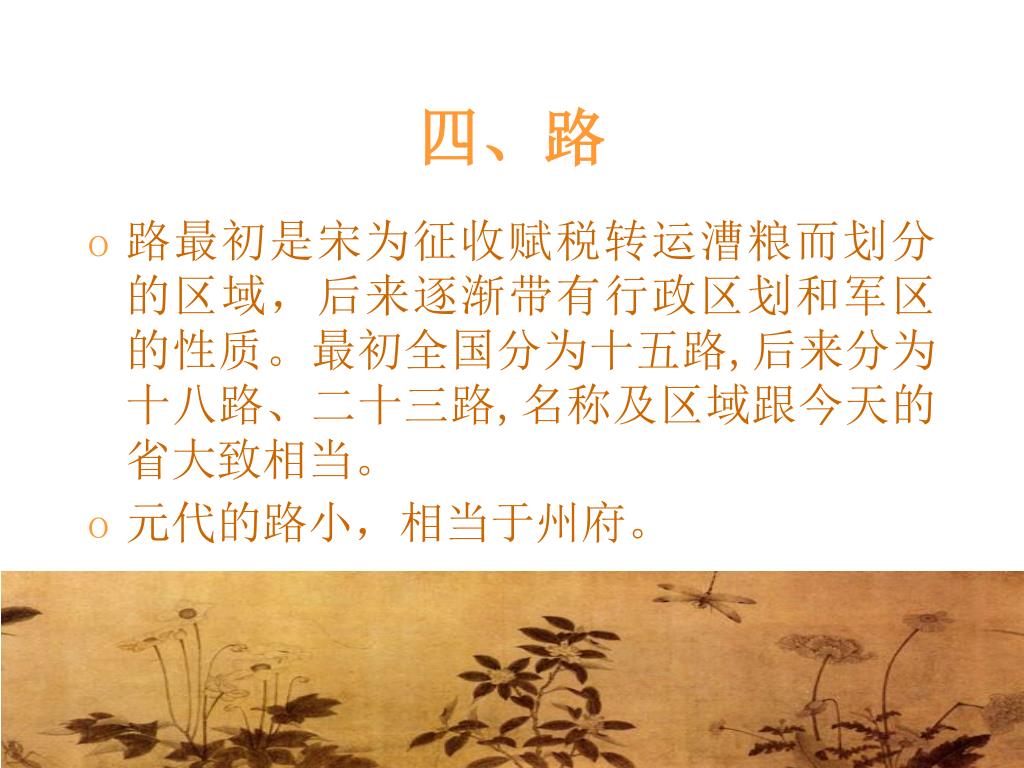 四、路
o 路最初是宋为征收赋税转运漕粮而划分
的区域，后来逐渐带有行政区划和军区
的性质。最初全国分为十五路,后来分为
十八路、二十三路,名称及区域跟今天的
省大致相当。
o 元代的路小，相当于州府。